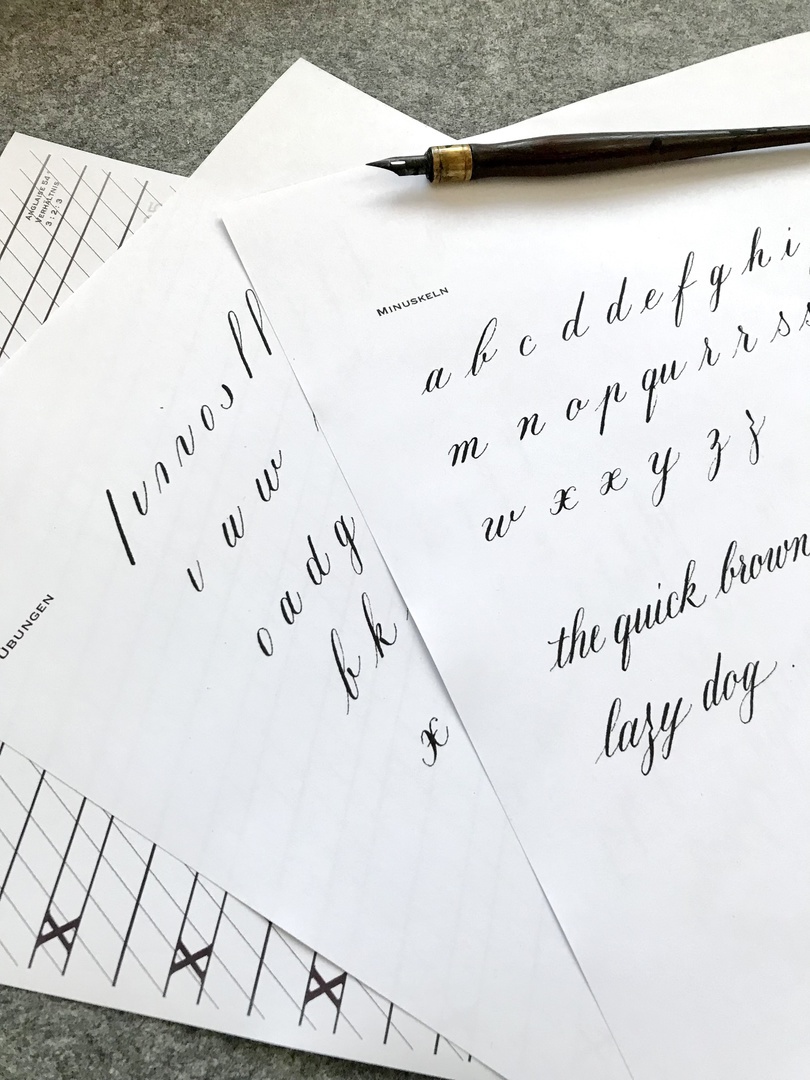 ANGLAISE 54°
VERHÄLTNIS
3 : 2 : 3
ÜBUNGEN
ı u w
o a d g
b k
x
MINUSKELN
a b c d d e f g h i
m n o p qu r r s s
w x x y z z
the quick brown
lazy dog
x x x